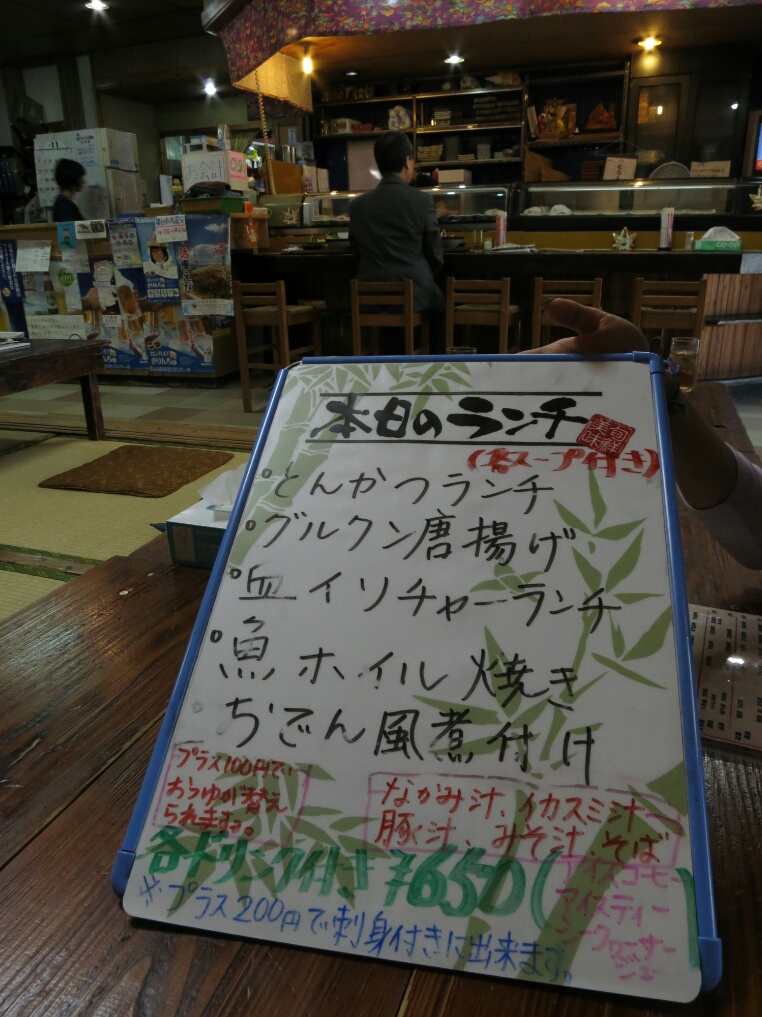 お会計
本日のランチ
旬鮮美味
(各スープ付き)
°とんかつランチ
°グルクン唐揚げ
°血イリチャーランチ
°魚ホイル焼き
°おでん風煮付け
プラス100円で
おつゆが替え
られます。
なかみ汁、イカスミ汁
豚汁、みそ汁、そば
各ドリンク付き ¥650(
アイスコーヒー
アイスティー
シークヮーサー
ジュース
※プラス200円で刺身付きに出来ます。